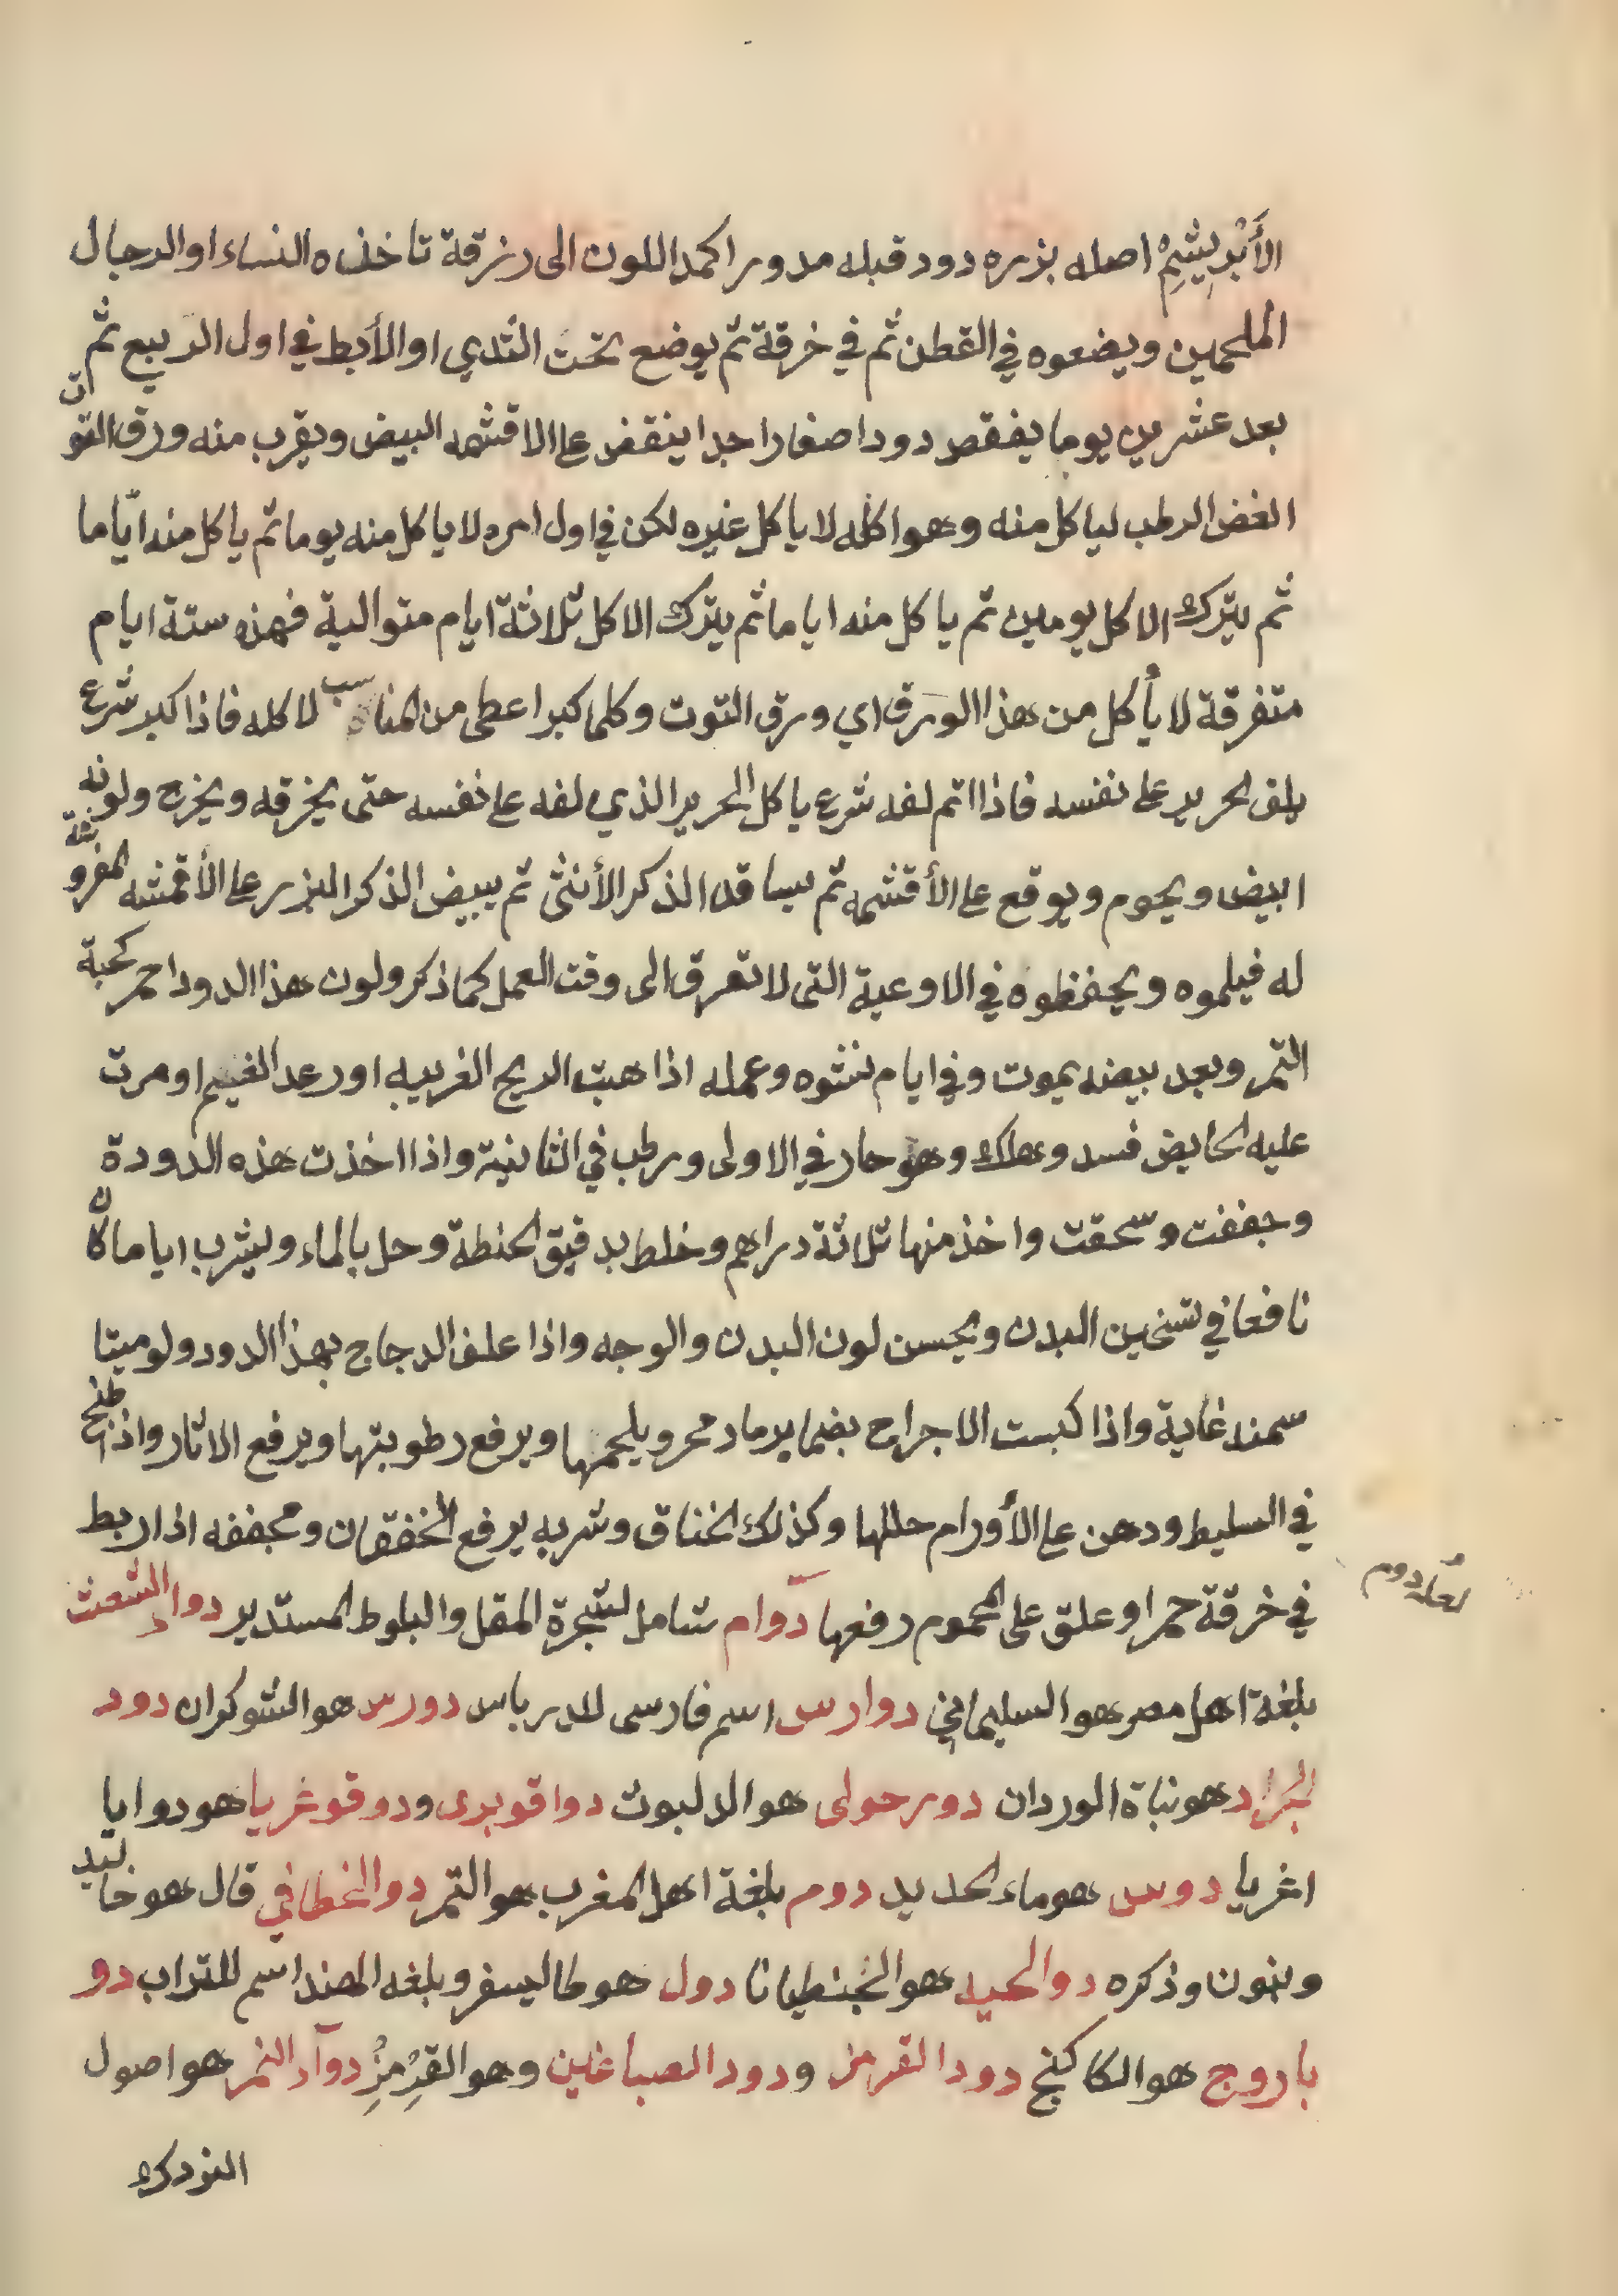 الأَبْرِيشِمْ اصله بزره دود قبله مدور اكمد اللون الى زرقة تاخذه النساء او الرجال
الملحمين ويضعوه في القطن ثم في خرقة ثم يوضع تحت الثدي او الأبط في اول الربيع ثم
بعد عشرين يوما يفقص دودا صغارا جدا ينقفز على الاقشمه البيض ويقرب منه ورق التوت
الغض الرطب لياكل منه وهو اكله لا ياكل غيره لكن في اول امره لا ياكل منه يوما ثم ياكل منه ايّاما
ثم يترك الاكل يومين ثم ياكل منه اياما ثم يترك الاكل ثلاثة ايام متوالية فهذه ستة ايام
متفرقة لا يأكل من هذا الورق اي ورق التوت وكلما كبر اعطى من المناسب لاكله فاذا كبر شرع
يلف الحرير على نفسه فاذا اتم لفه شرع ياكل الحرير الذي لفه على نفسه حتى يخرقه ويخرج ولونه
ابيض ويحوم ويوقع على الأقشمه ثم يسافد الذكر الأنثى ثم يبيض الذكر البزر على الأقمشه المفروشة
له فيلموه ويحفظوه في الاوعية التى لا تعرق الى وقت العمل كما ذكر ولون هذا الدود احمر كحبة
التمر وبعد بيضه يموت وفي ايام نشوه وعمله اذا هبت الريح الغربيه او رعد الغيم او مرت
عليه الحايض فسد وهلك وهو حار في الاولى ورطب في الثانية واذا اخذت هذه الدودة
وجففت وسحقت واخذ منها ثلاثة دراهم وخلط بدقيق الحنطة وحل بالماء ويشرب اياما كان
نافعا في تسخين البدن ويحسن لون البدن والوجه واذا علف الدجاج بهذا الدود ولو ميتا
سمنه غاية واذا كبست الاجراح برماد محرو يلحمها ويرفع رطوبتها ويرفع الاثار واذا طبخ
في السليط ودهن على الأورام حللها وكذلك الخناق وشربه يرفع الخفقان ومجففه اذا ربط
في خرقة حمرا وعلق على المحموم رفعها دوام شامل لشجرة المقل والبلوط المستدير دوا الشعث
بلغة اهل مصر هو السليماني دوارس اسم فارسى للدرباس دورس هو الشوكران دود
الجراد هو نباة الوردان دورحولى هو الدلبوث دواقوبرى ودوقوغريا هو دوايا
اغريا دوس هو ماء الحديد دوم بلغة اهل المغرب هو التمر دوا الخطافي قال هو خاليد
ونيون وذكره دوا الحيه هو الجنطيانا دول هو طاليسفر وبلغه الهند اسم للتراب دو
باروج هو الكاكنج دود القرمز ودود الصباغين وهو القِرْمِزْ دوآد النمر هو اصول
النردك